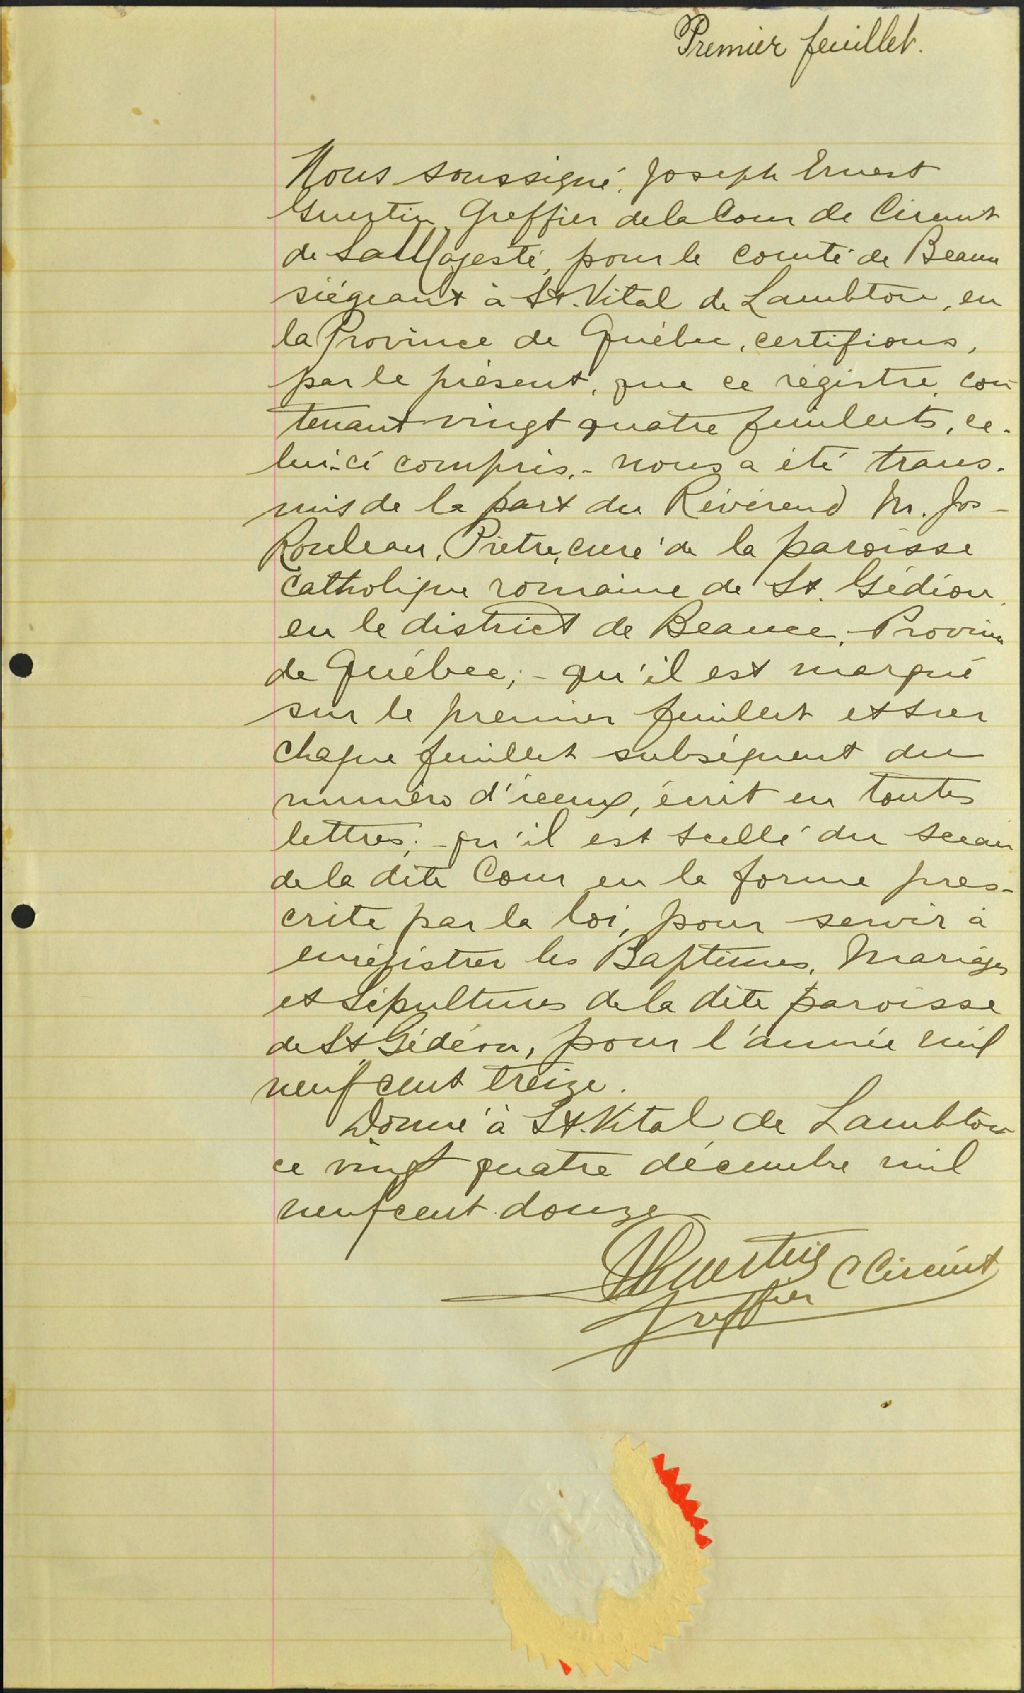 Premier feuillet.
Nous soussigné, Joseph Ernest
Guertin, Greffier de la Cour de Circuit
de Sa Majesté, pour le comté de Beauce
siégeant à St. Vital de Lambton, en
la Province de Québec, certifions,
par le présent, que ce régistre, con
tenant vingt quatre feuillets, ce-
lui-ci compris, - nous a été trans-
mis de la part du Révérend M. Jos-
Rouleau, Prêtre, curé de la paroisse
catholique romaine de St. Gédéon,
en le district de Beauce, Province
de Québec; - qu'il est marqué
sur le premier feuillet et sur
chaque feuillet subséquent du
numéro d'iceux, écrit en toutes
lettres; - qu'il est scellé du sceau
de la dite Cour en la forme pres-
crite par la loi, pour servir à
enrégistrer les Baptêmes, Mariages
et Sépultures de la dite paroisse
de St Gédéon, pour l'année mil
neuf cent treize.
Donné à St. Vital de Lambton
ce vingt quatre décembre mil
neuf cent douze
Guertin C Circuit
Greffier